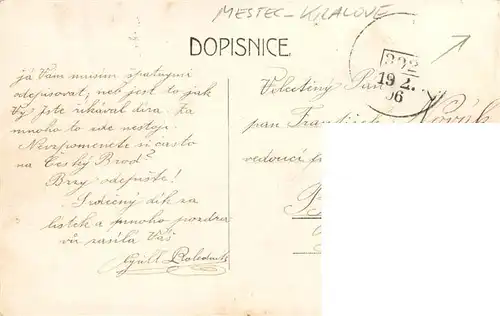 MESTEC-KRALOVE
DOPISNICE
392
19 2.
06
já Vám musím špatnými
odepisovat, neb jest to jak
Vy jste říkával díra. Za
mnoho to ale nestojí.
Nevzpomenete si často
na Český Brod?
Brzy odepište!
Srdečný dík za
lístek a mnoho pozdra
vů zasílá Váš
Cyrill
Velectěný Pán
pan František Novák
vedoucí